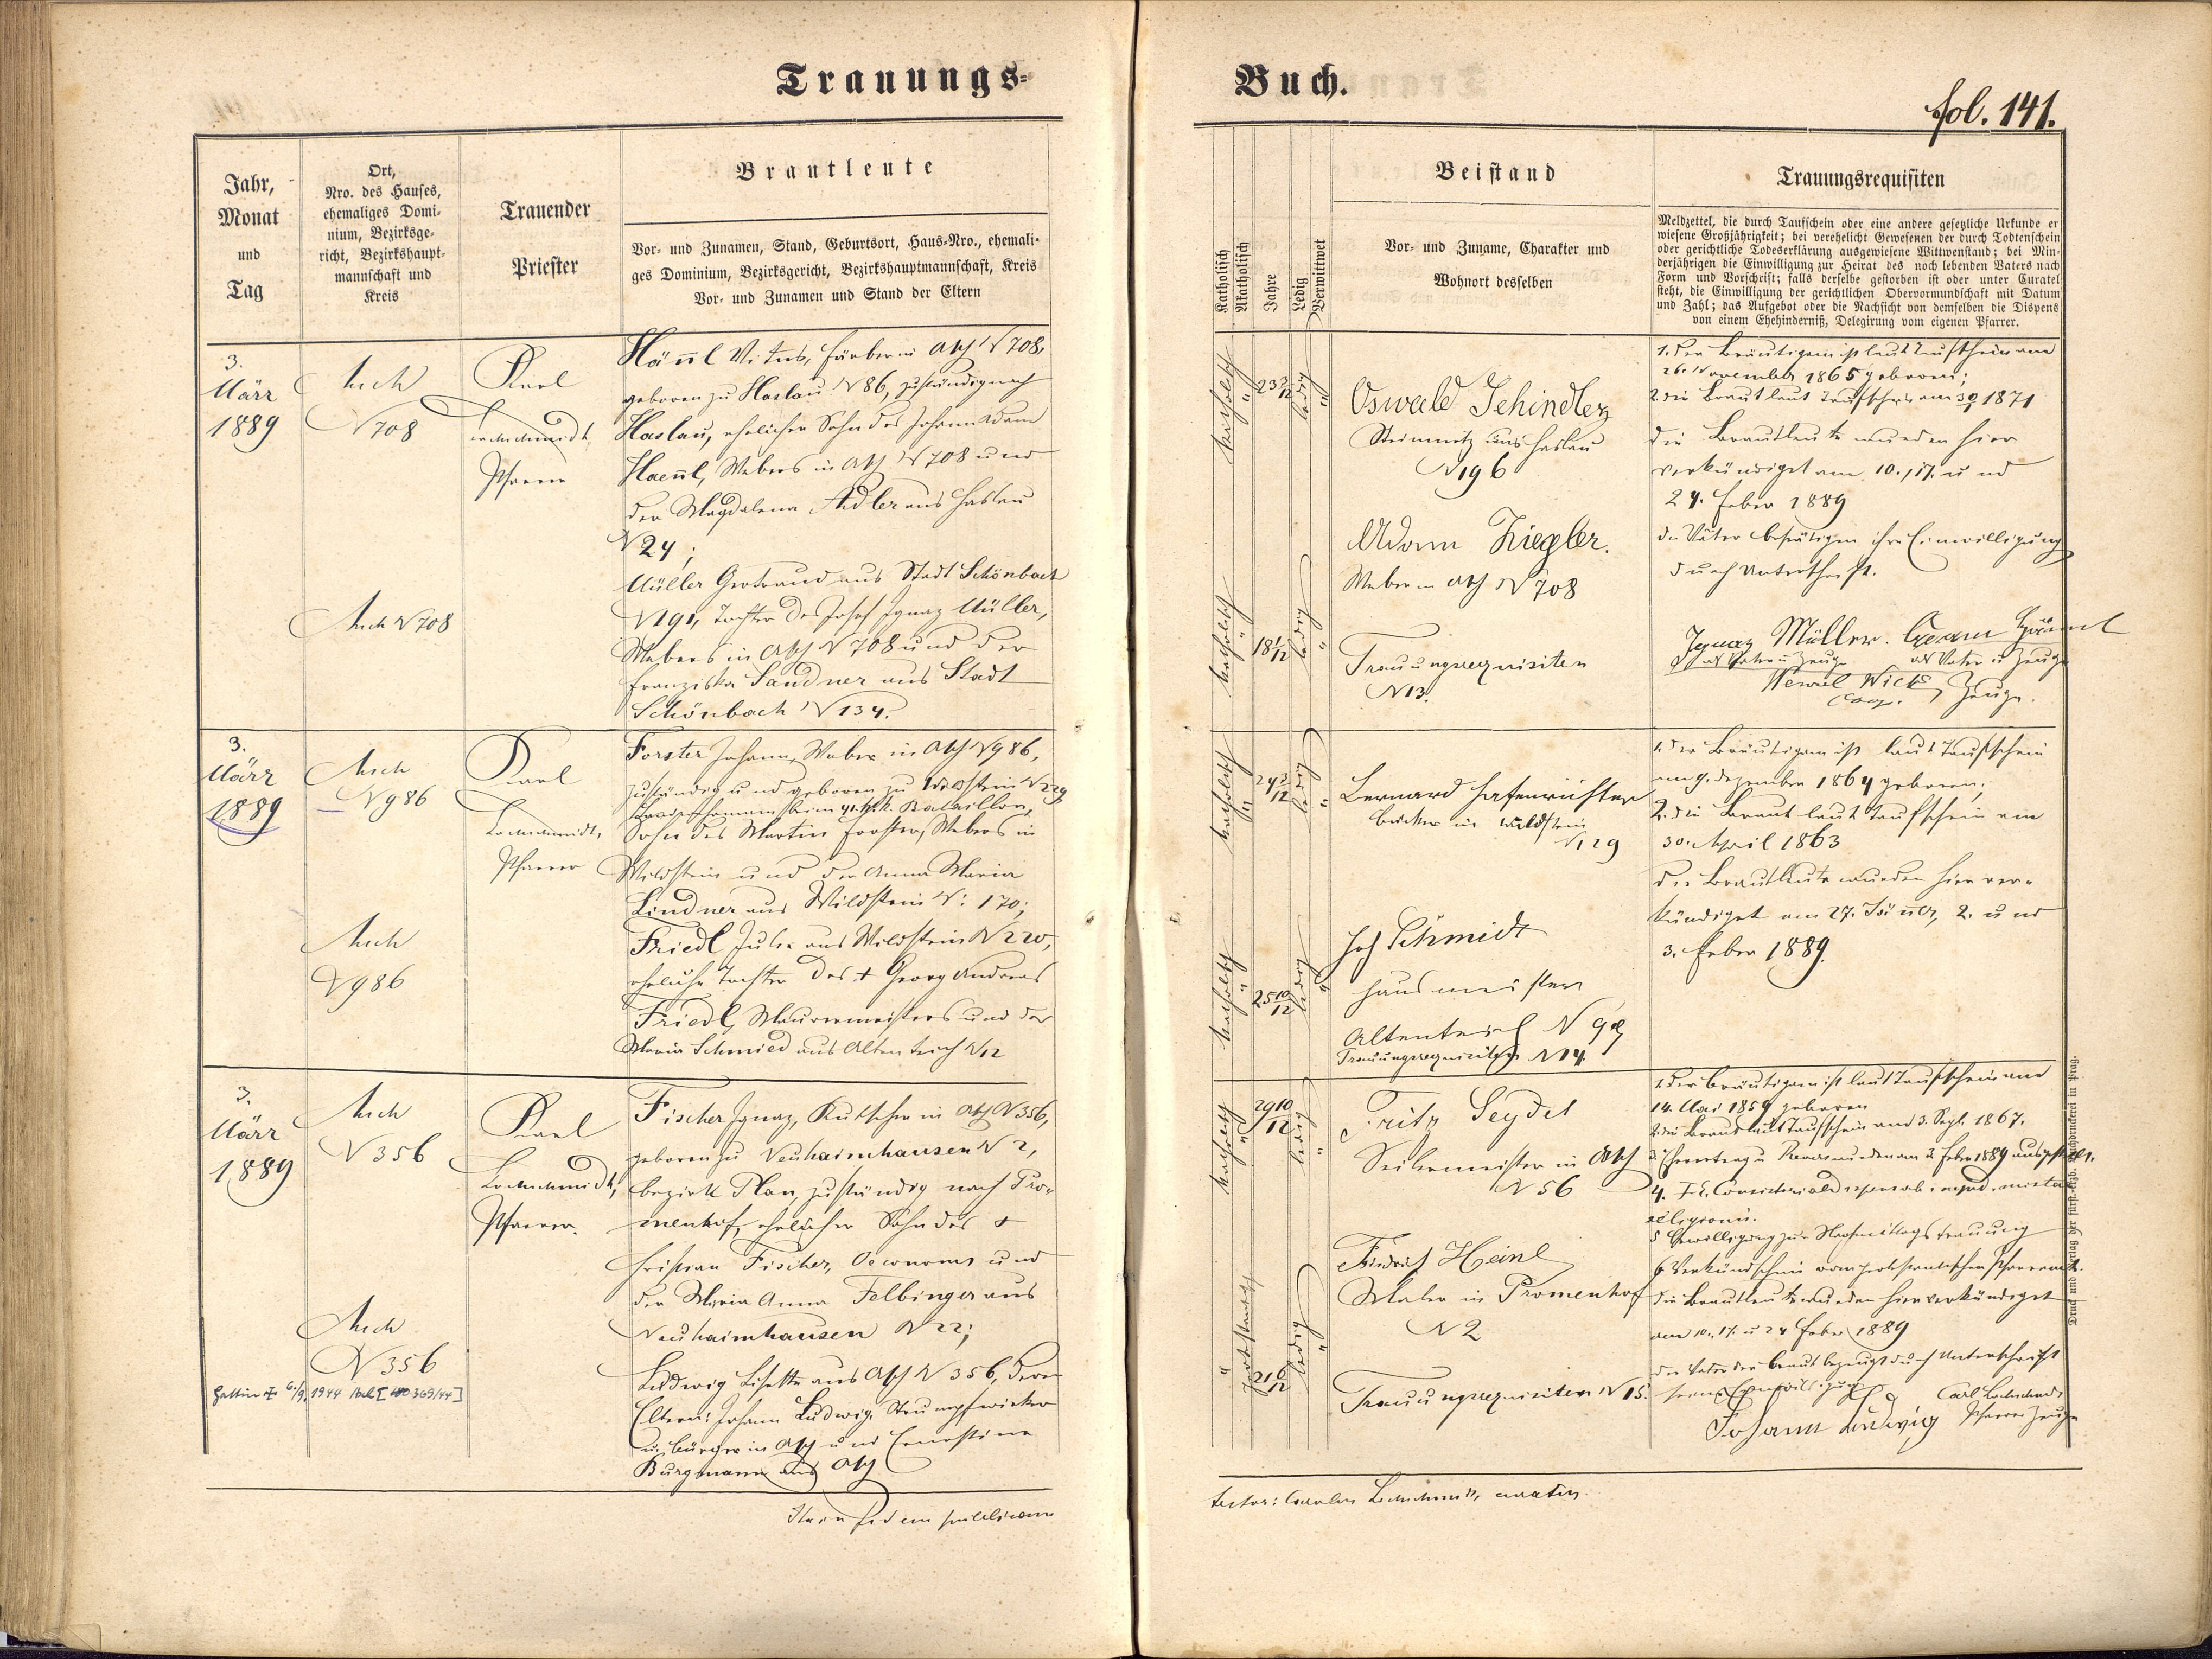 Trauungs-
Buch.
fol. 141.
Jahr,
Monat
und
Tag
Ort,
Nro. des Hauses,
ehemaliges Domi-
nium, Bezirksge-
richt, Bezirkshaupt-
mannschaft und
Kreis
Trauender
Priester
Brautleute
Vor- und Zunamen, Stand, Geburtsort, Haus-Nro., ehemali-
ges Dominium, Bezirksgericht, Bezirkshauptmannschaft, Kreis
Vor- und Zunamen und Stand der Eltern
Katholisch
Akatholisch
Jahre
Ledig
Verwittwet
Beistand
Vor- und Zuname, Charakter und
Wohnort desselben
Trauungsrequisiten
Meldzettel, die durch Taufschein oder eine andere gesetzliche Urkunde er
wiesene Großjährigkeit; bei verehelicht Gewesenen der durch Todtenschein
oder gerichtliche Todeserklärung ausgewiesene Wittwenstand; bei Min-
derjährigen die Einwilligung zur Heirat des noch lebenden Vaters nach
Form und Vorschrift; falls derselbe gestorben ist oder unter Curatel
steht, die Einwilligung der gerichtlichen Obervormundschaft mit Datum
und Zahl; das Aufgebot oder die Nachsicht von demselben die Dispens
von einem Ehehinderniß, Delegirung vom eigenen Pfarrer.
3.
März
1889
Asch
N 708
Karl
Lochschmidt,
Pfarrer
Asch N 708
Hännl Vitus, Färber in Asch N 708,
geboren zu Haslau N 86, zuständig nach
Haslau, ehelicher Sohn des Johann Adam
Haennl, Webers in Asch N 708 und
der Magdalena Adler aus Haslau
N 24;
Müller Gertraud aus Stadt Schönbach
N 191, Tochter des Josef Ignaz Müller,
Webers in Asch N 708 und der
Franziska Sandner aus Stadt
Schönbach N 134.
katholisch
"
23 3/12
ledig
"
katholisch
"
18 1/12
ledig
"
Oswald Schindler
Steinmetz aus Haslau
N 196
Adam Ziegler.
Weber in Asch N 708
Trauungsrequisiten
N 13.
1. Der Bräutigam ist laut Taufschein am
26. November 1865 geboren;
2. die Braut laut Taufschein am 30/1 1871
Die Brautleute wurden hier
verkündigt am 10., 17. und
24. Feber 1889
Die Väter bestätigen ihre Einwilligung
durch Unterschrift.
Ignaz Müller. Adam Hännl
als Vater u Zeuge als Vater u Zeuge
Wenzel Wick
Coop. Zeuge.
3.
März
1889
Asch
N 986
Karl
Lochschmidt,
Pfarrer
Asch
N 986
Forster Johann, Weber in Asch N 986,
zuständig und geboren zu Wildstein N 229
beim k. k. Bataillon,
Sohn des Martin Forster, Webers in
Wildstein und der Anna Maria
Lindner aus Wildstein N: 170;
Friedl Julie aus Wildstein N 220,
eheliche Tochter des + Georg Andreas
Friedl, Maurermeisters und der
Maria Schmied aus Altenteich N 12
katholisch
"
24 3/12
ledig
"
katholisch
"
25 10/12
ledig
"
Bernard Hafenrichter
Bäcker in Wildstein
N 129
Joh Schmidt
Hausmeister
Altenteich N
Trauungsrequisiten N 14.
1. Der Bräutigam ist laut Taufschein
am 9. Dezember 1864 geboren;
2. die Braut laut Taufschein am
30. April 1863
Die Brautleute wurden hier ver-
kündigt am 27. Jänner, 2. und
3. Feber 1889.
3.
März
1889
Asch
N 356
Karl
Lochschmidt,
Pfarrer.
Asch
N 356
Gattin + 6./9. 1944 Asch [ 369/44]
Fischer Ignaz, Kutscher in Asch N 356,
geboren zu Neuhaimhausen N 2,
Bezirk Plan, zuständig nach Pro-
menhof, ehelicher Sohn des +
Christian Fischer, Oeconoms und
der Maria Anna Felbinger aus
Neuhaimhausen N 22;
Ludwig Lisette aus Asch N 356, deren
Eltern: Johann Ludwig, Strumpfwirker
u. Bürger in Asch und Ernestine
Burgmann aus Asch
katholisch
"
29 10/12
ledig
"
protestantisch
"
21 6/12
ledig
"
Fritz Seydel
Seilermeister in Asch
N 56
Friedrich Heinl
Maler in Promenhof
N 2
Trauungsrequisiten N 15.
1. Der Bräutigam ist laut Taufschein am
14. Mai 1859 geboren
2. die Braut laut Taufschein am 3. Sept. 1867.
3. Ehevertrag u Revers wurden am 2. Feber 1889 ausgestellt.
4. F. E. Consistorialdispens ab imped. mixtae
religionis.
5 Bewilligung zur Nachmittagstrauung
6. Verkündschein vom protestantischen Pfarramt.
Die Brautleute wurden hier verkündigt
am 10., 17. u 24 Feber 1889
Der Vater der Braut bezeugt durch Unterschrift
seine Einwilligung
Carl Lochschmidt
Johann Ludwig Pfarrer Zeuge
In fidem publicam
testor: Carolus Lochschmidt, curatus.
Druck und Verlag der fürst-erzb. Buchdruckerei in Prag.